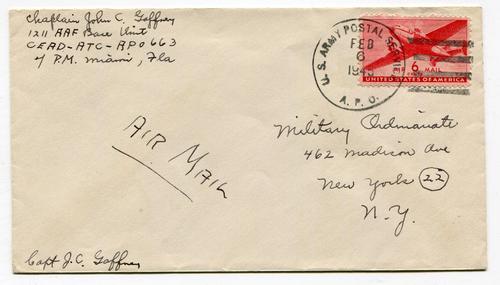 Chaplain John C. Gaffney
1211 AAF Base Unit
CEAD-ATC-APO 663
c/o P.M. Miami, Fla
U.S. ARMY POSTAL SERVICE
FEB
6
1945
A.P.O.
6¢ MAIL
UNITED STATES OF AMERICA
AIR MAIL
Military Ordinariate
462 Madison Ave
New York 22
N.Y.
Capt J.C. Gaffney